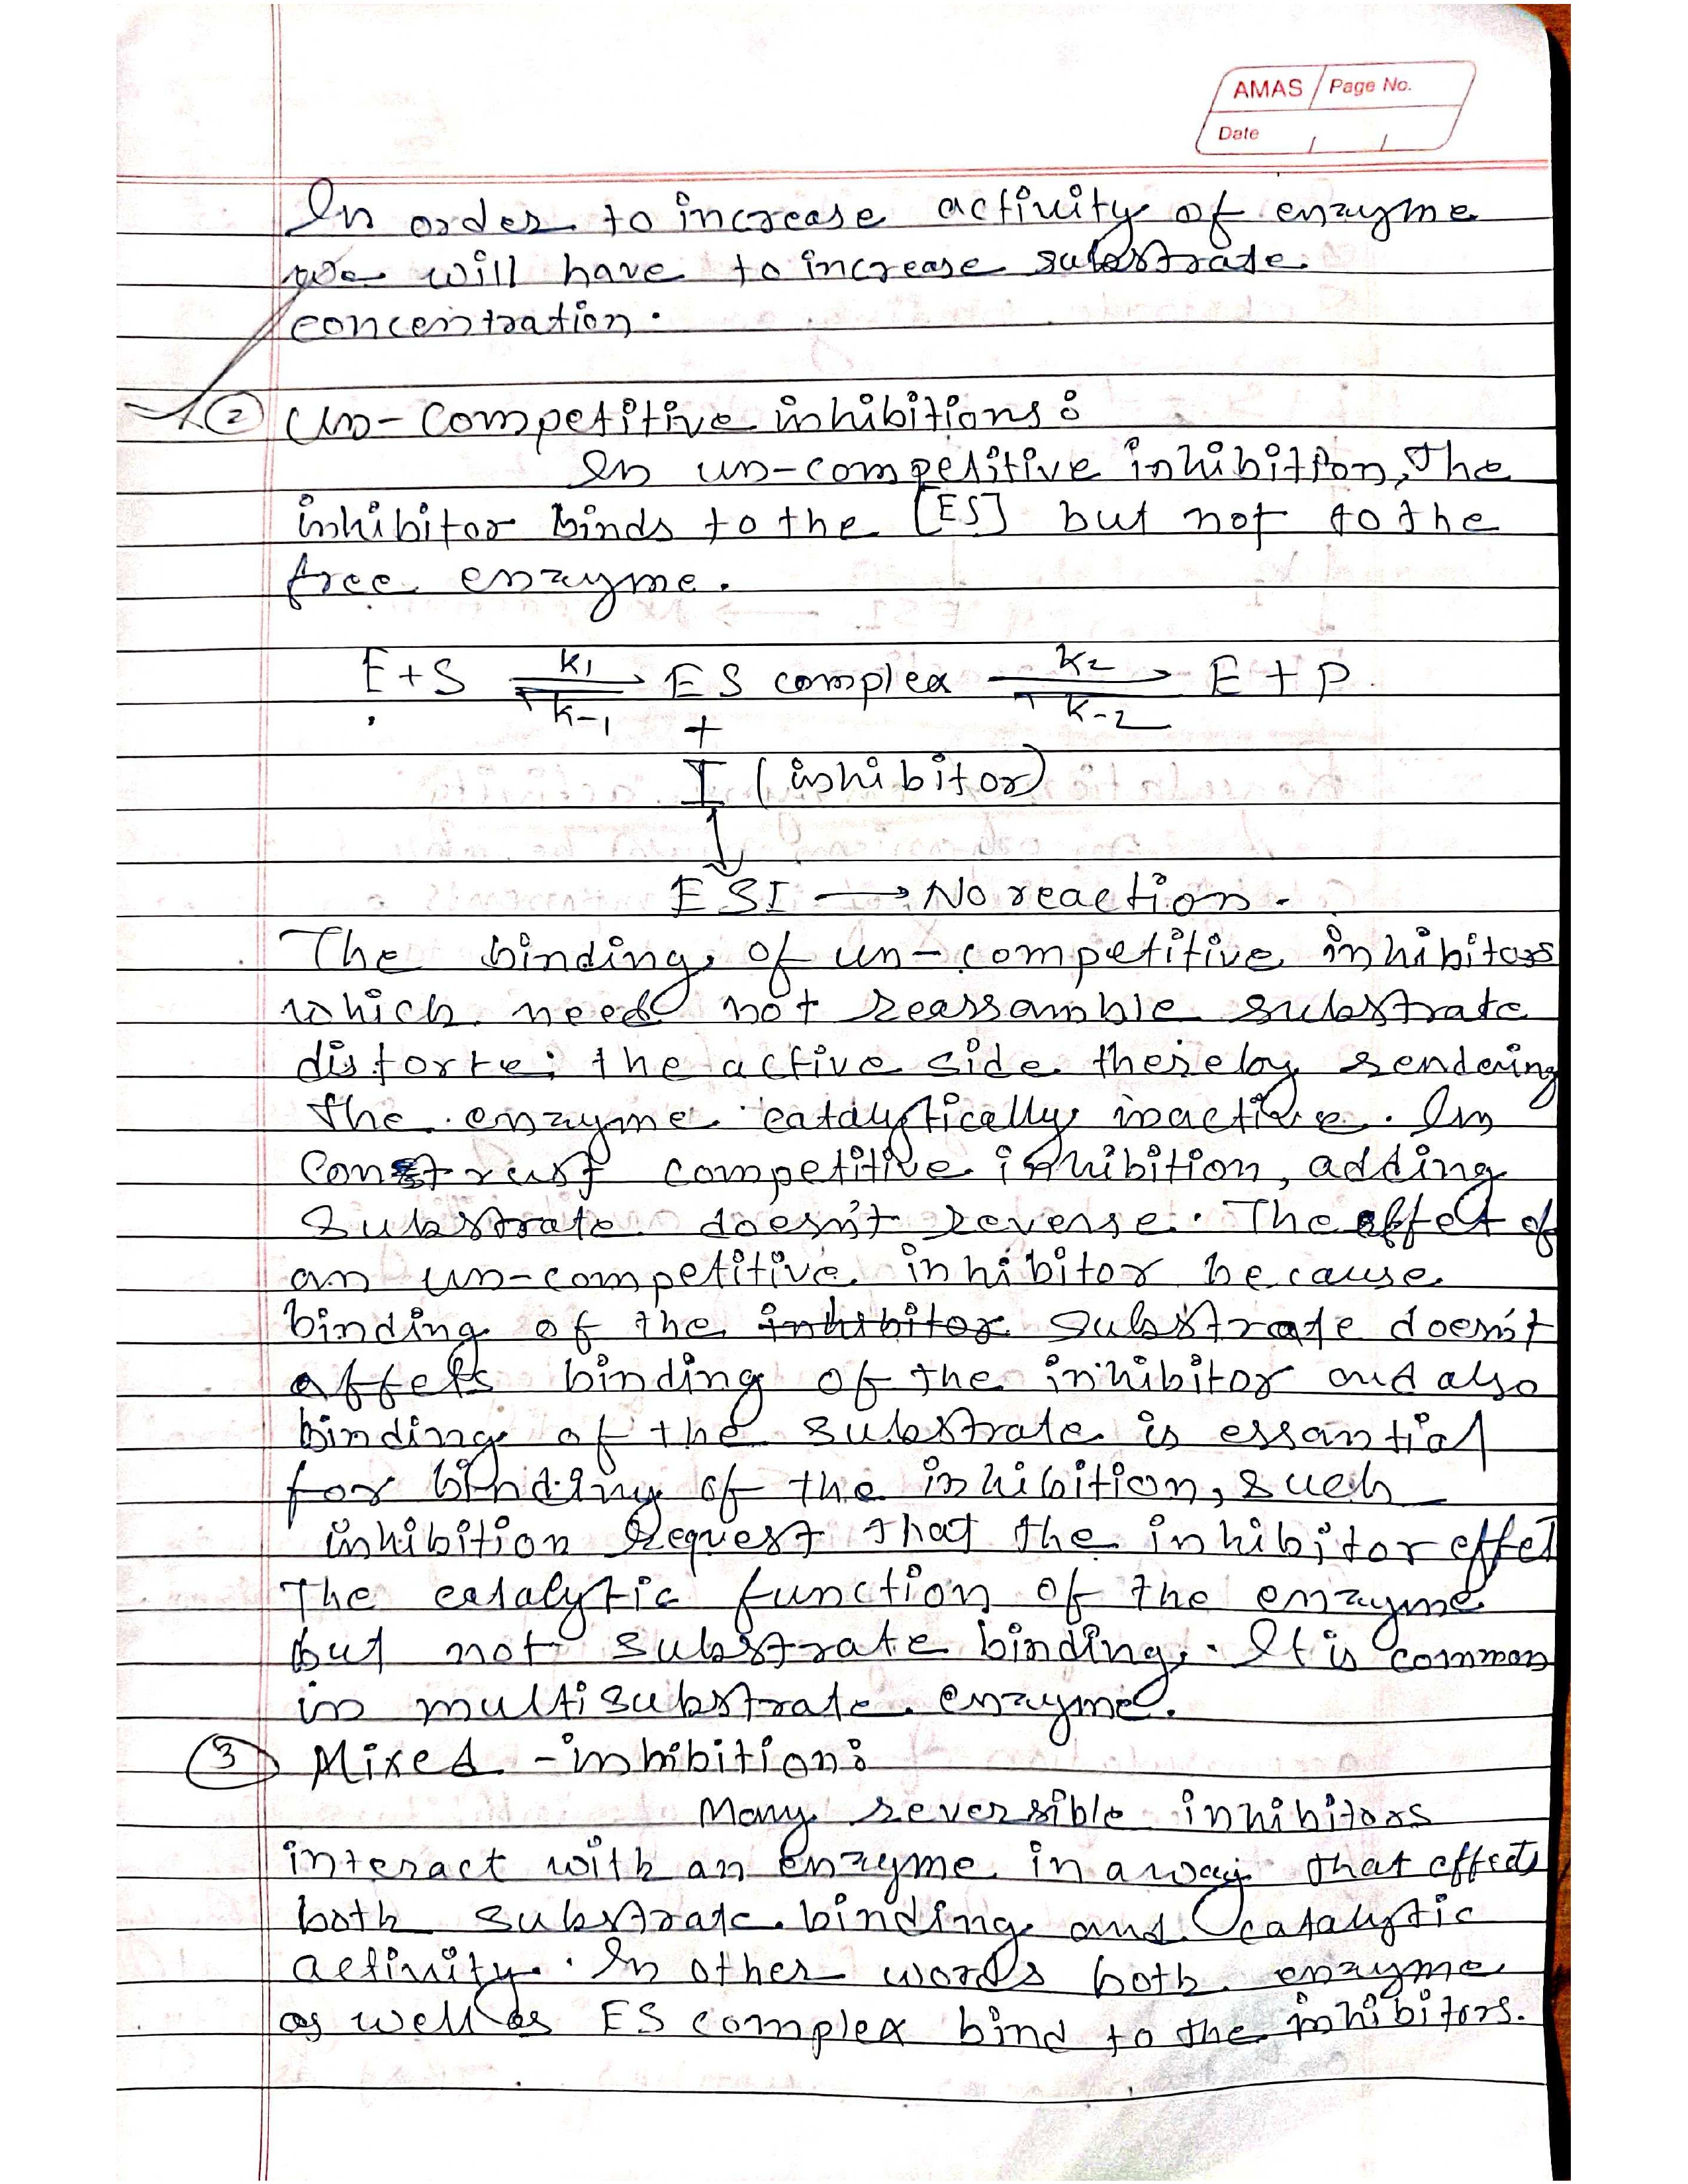 AMAS Page No.
Date / /
In order to increase activity of enzyme
we will have to increase substrate
concentration.
② Un-Competitive inhibitions:
In un-competitive inhibition, the
inhibitor binds to the [ES] but not to the
free enzyme.
E+S k1 ES complex k2 E+P.
k-1 k-2
+
I (inhibitor)
↓
ESI → No reaction.
The binding of un-competitive inhibitors
which need not reassamble substrate
distorte the active side thereby rendering
the enzyme catalytically inactive. In
Construst competitive inhibition, adding
Substrate doesn't reverse. The effect of
an un-competitive inhibitor because
binding of the inhibitor substrate doesn't
affets binding of the inhibitor and also
binding of the substrate is essantial
for binding of the inhibition, such
inhibition request that the inhibitor effet
The catalytic function of the enzyme
but not substrate binding. It is common
in multisubstrate enzyme.
③ Mixed -inhibition:
Many reversible inhibitors
interact with an enzyme in a way that effects
both substrate binding and catalytic
activity. In other words both enzyme
as well as ES complex bind to the inhibitors.